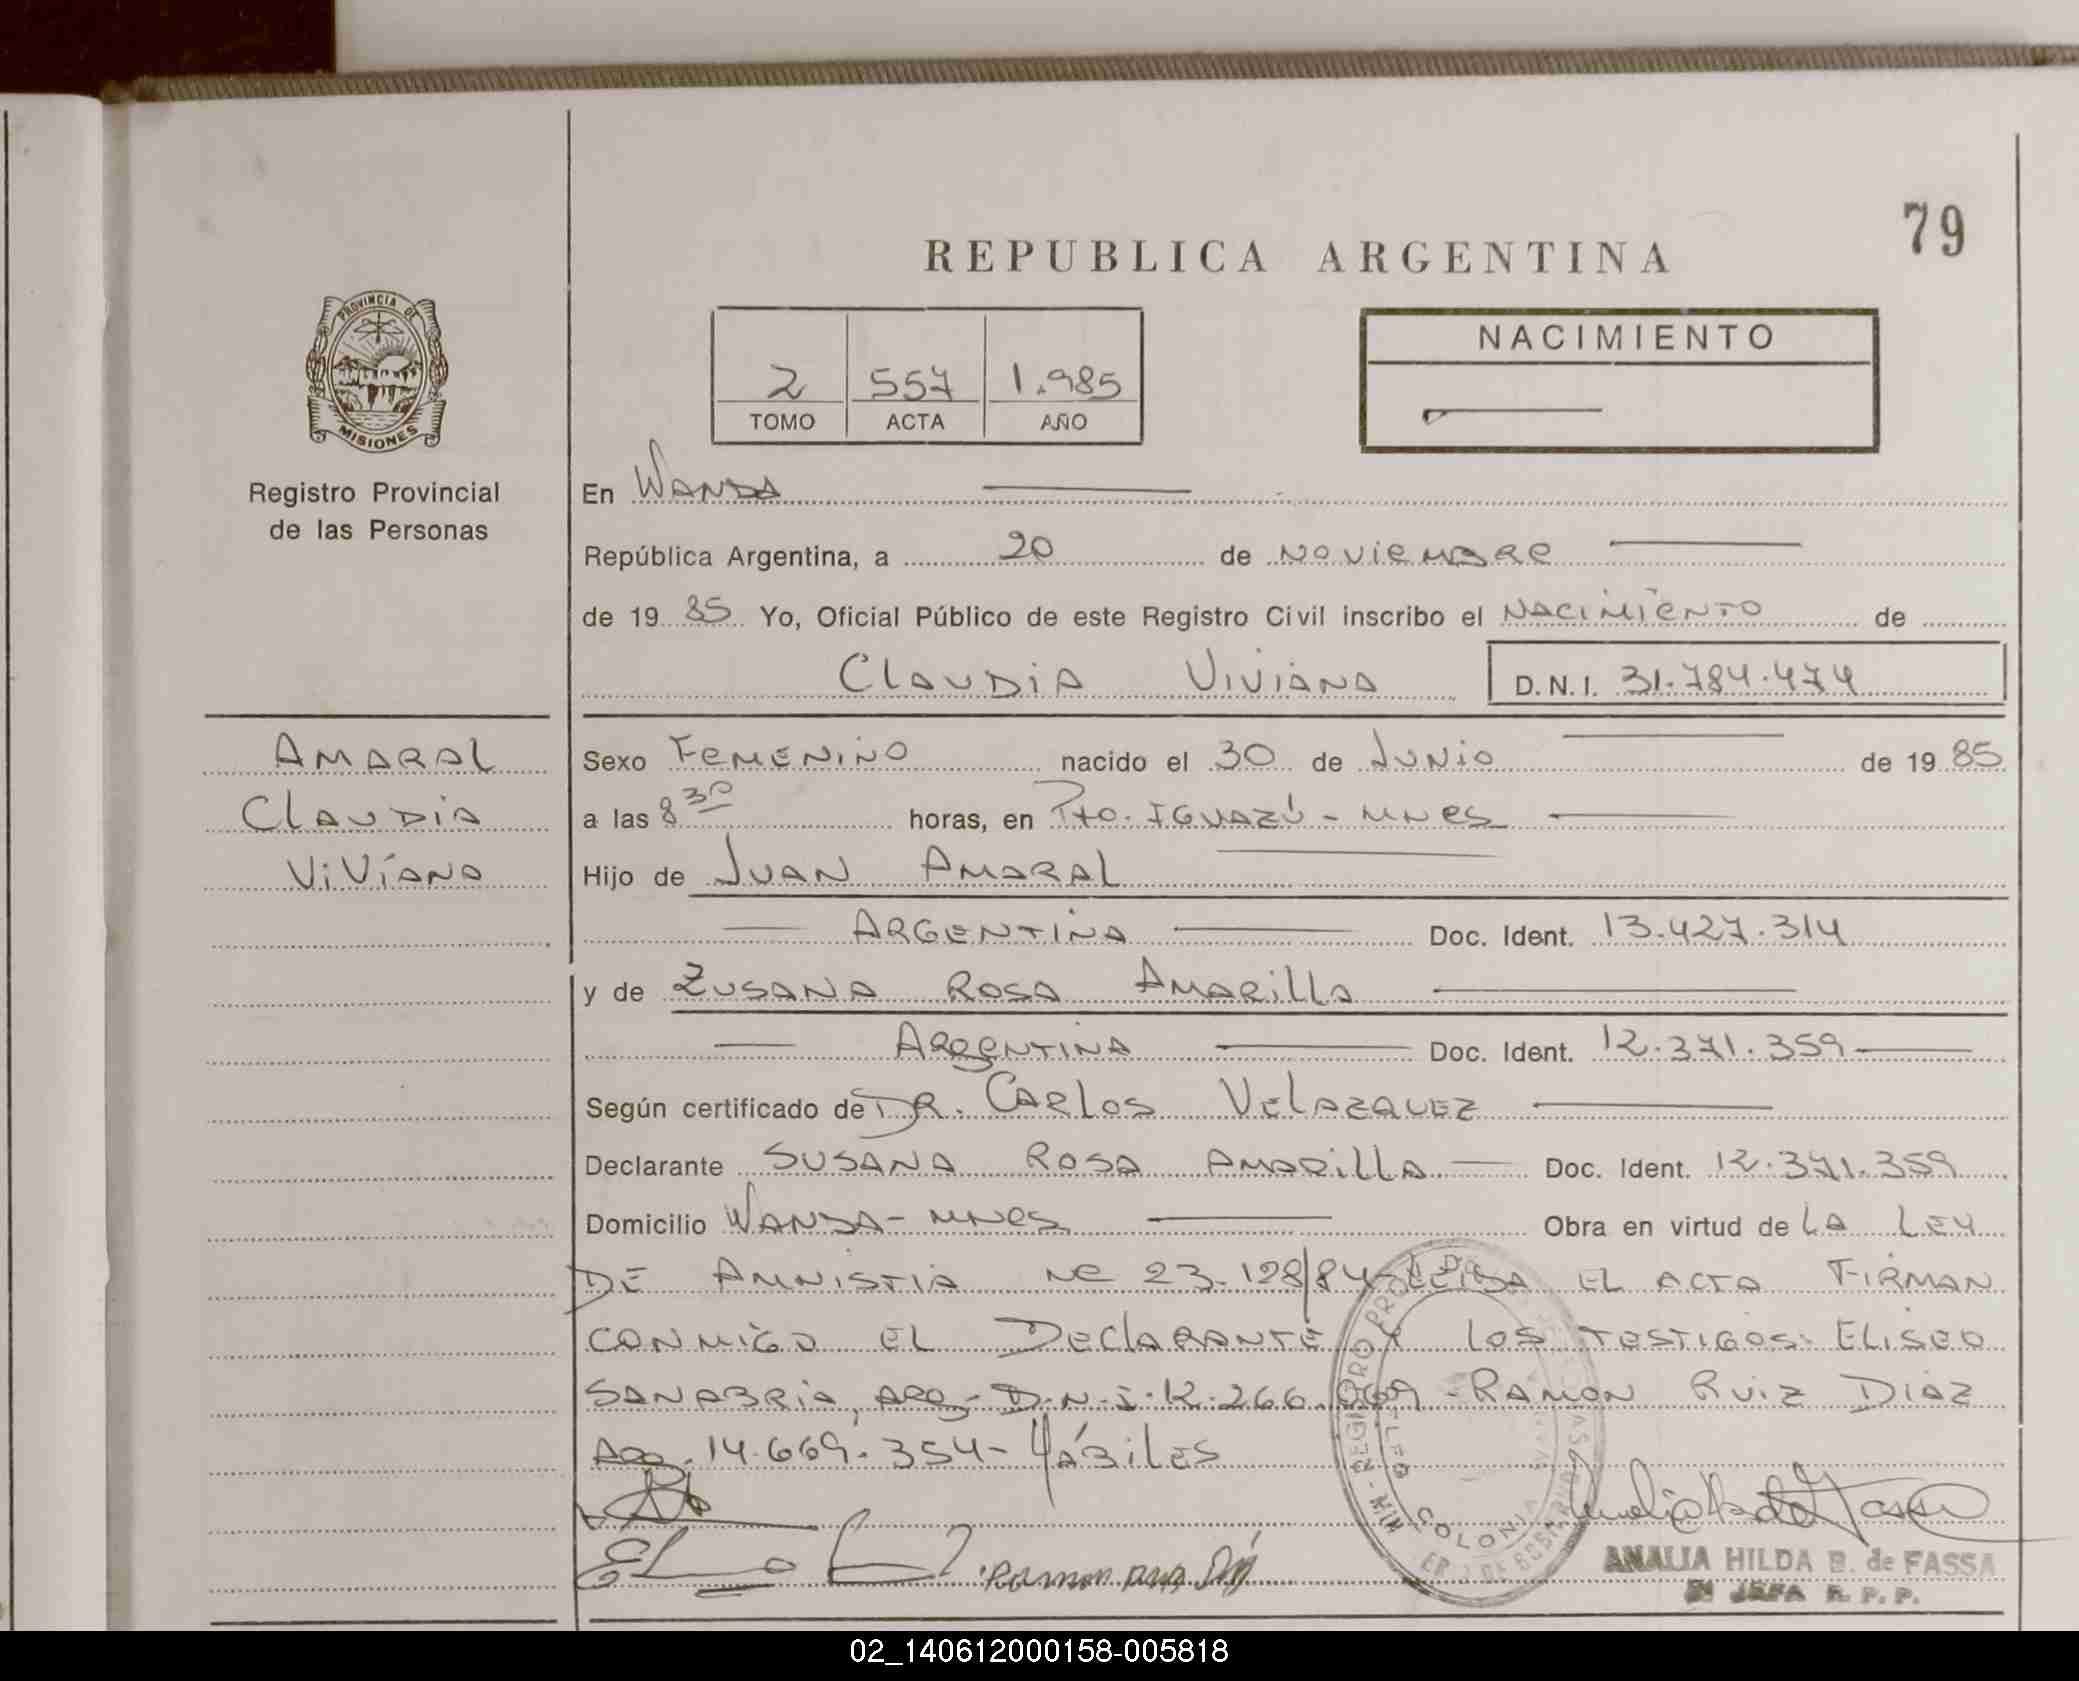 79
REPUBLICA ARGENTINA
PROVINCIA DE
MISIONES
Registro Provincial
de las Personas
2 557 1.985
TOMO ACTA AÑO
NACIMIENTO
En Wanda
República Argentina, a 20 de Noviembre
de 19 85 Yo, Oficial Público de este Registro Civil inscribo el Nacimiento de
Claudia Viviana D.N.I. 31.784.474
Amaral
Claudia
Viviana
Sexo Femenino nacido el 30 de Junio de 19 85
a las 8 30 horas, en Pto. Iguazú - Mnes
Hijo de Juan Amaral
Argentina Doc. Ident. 13.427.314
y de Zusana Rosa Amarilla
Argentina Doc. Ident. 12.371.359
Según certificado de DR. Carlos Velazquez
Declarante Susana Rosa Amarilla Doc. Ident. 12.371.359
Domicilio Wanda - Mnes Obra en virtud de la Ley
de Amnistia Ne 23.128/84 - Leida el acta firman
conmigo el Declarante y los testigos: Eliseo
Sanabria, Arg - D.N.I. 12.266.069 - Ramon Ruiz Diaz
Arg. 14.669.354 - Hábiles
Ramon Ruiz Diaz
REGISTRO
COLONIA
ANALIA HILDA B. de FASSA
JEFA R. P. P.
02_140612000158-005818